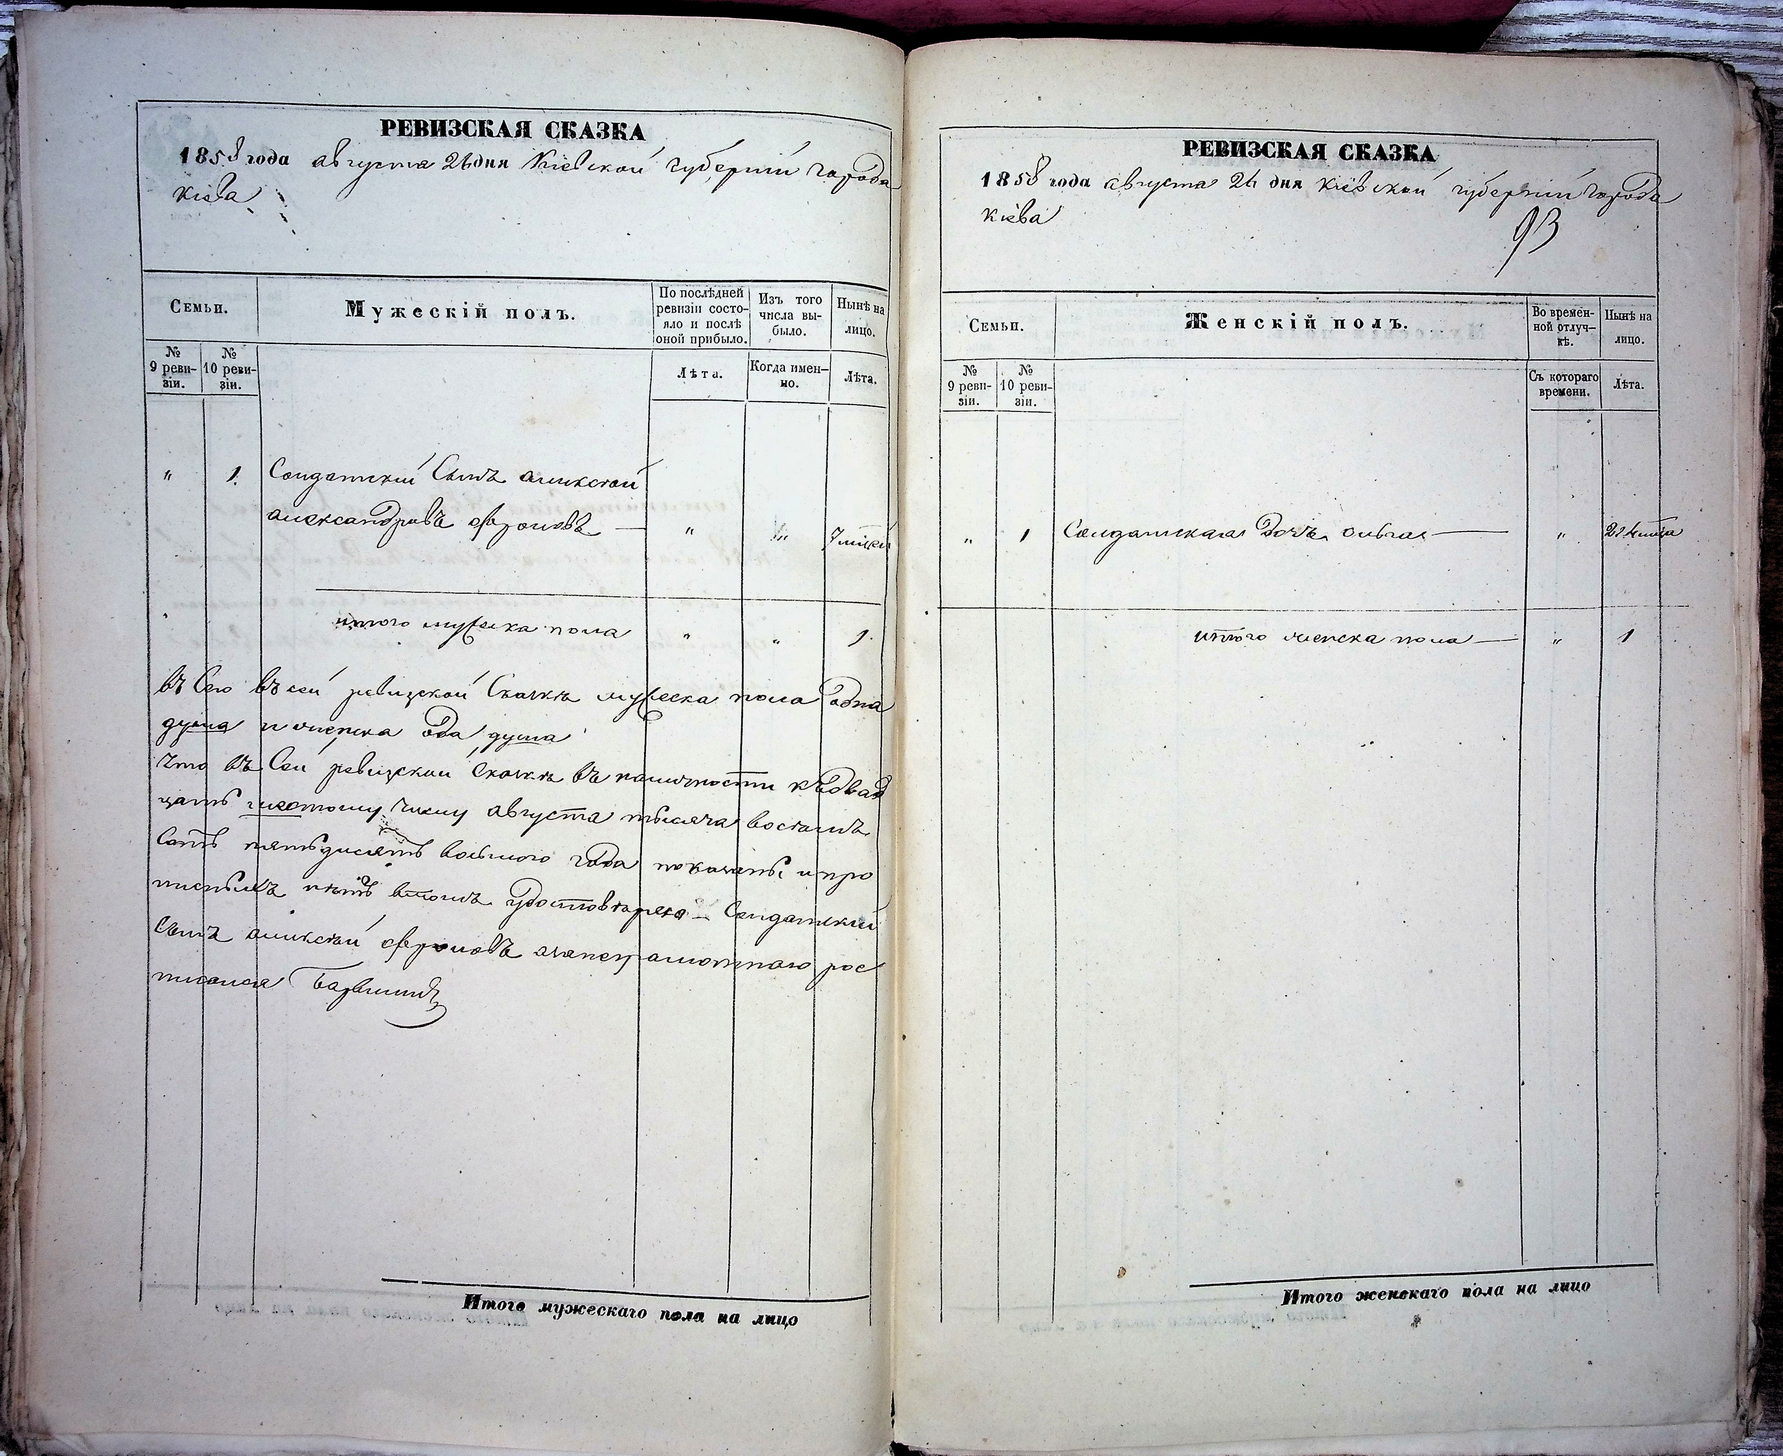 РЕВИЗСКАЯ СКАЗКА
1858 года августа 26 дня Кіевской губерніи города
Кіева
Семьи.
Мужескій полъ.
По послѣдней ревизіи состояло и послѣ оной прибыло.
Изъ того числа выбыло.
Нынѣ на лицо.
№ 9 ревизіи.
№ 10 ревизіи.
Лѣта.
Когда именно.
Лѣта.
" 1. Солдатскій Сынъ аликсѣй
александровъ фроловъ — " " 7
итого мужеска пола " " 1.
въ Сего въ сей ревизской Сказкѣ мужеска пола одна
душа и женска ода душа
Что въ Сей ревизской Сказкѣ въ наличности къ двад
цать шестому числу августа тысяча восемъ
сотъ пятьдисятъ восьмого года показаны и про
писныхъ нѣтъ втомъ удостовѣряю — Солдатский
Сынъ аликсѣй фроловъ анеграмотнаго рос
писался
Итого мужескаго пола на лицо
РЕВИЗСКАЯ СКАЗКА
1858 года августа 26 дня Кіевской губерніи города
Кіева
93
Семьи.
Женскій полъ.
Во временной отлучкѣ.
Нынѣ на лицо.
№ 9 ревизіи.
№ 10 ревизіи.
Съ котораго времени.
Лѣта.
" 1 Солдатская Дочь ольга — "
итого женска пола — " 1
Итого женскаго пола на лицо